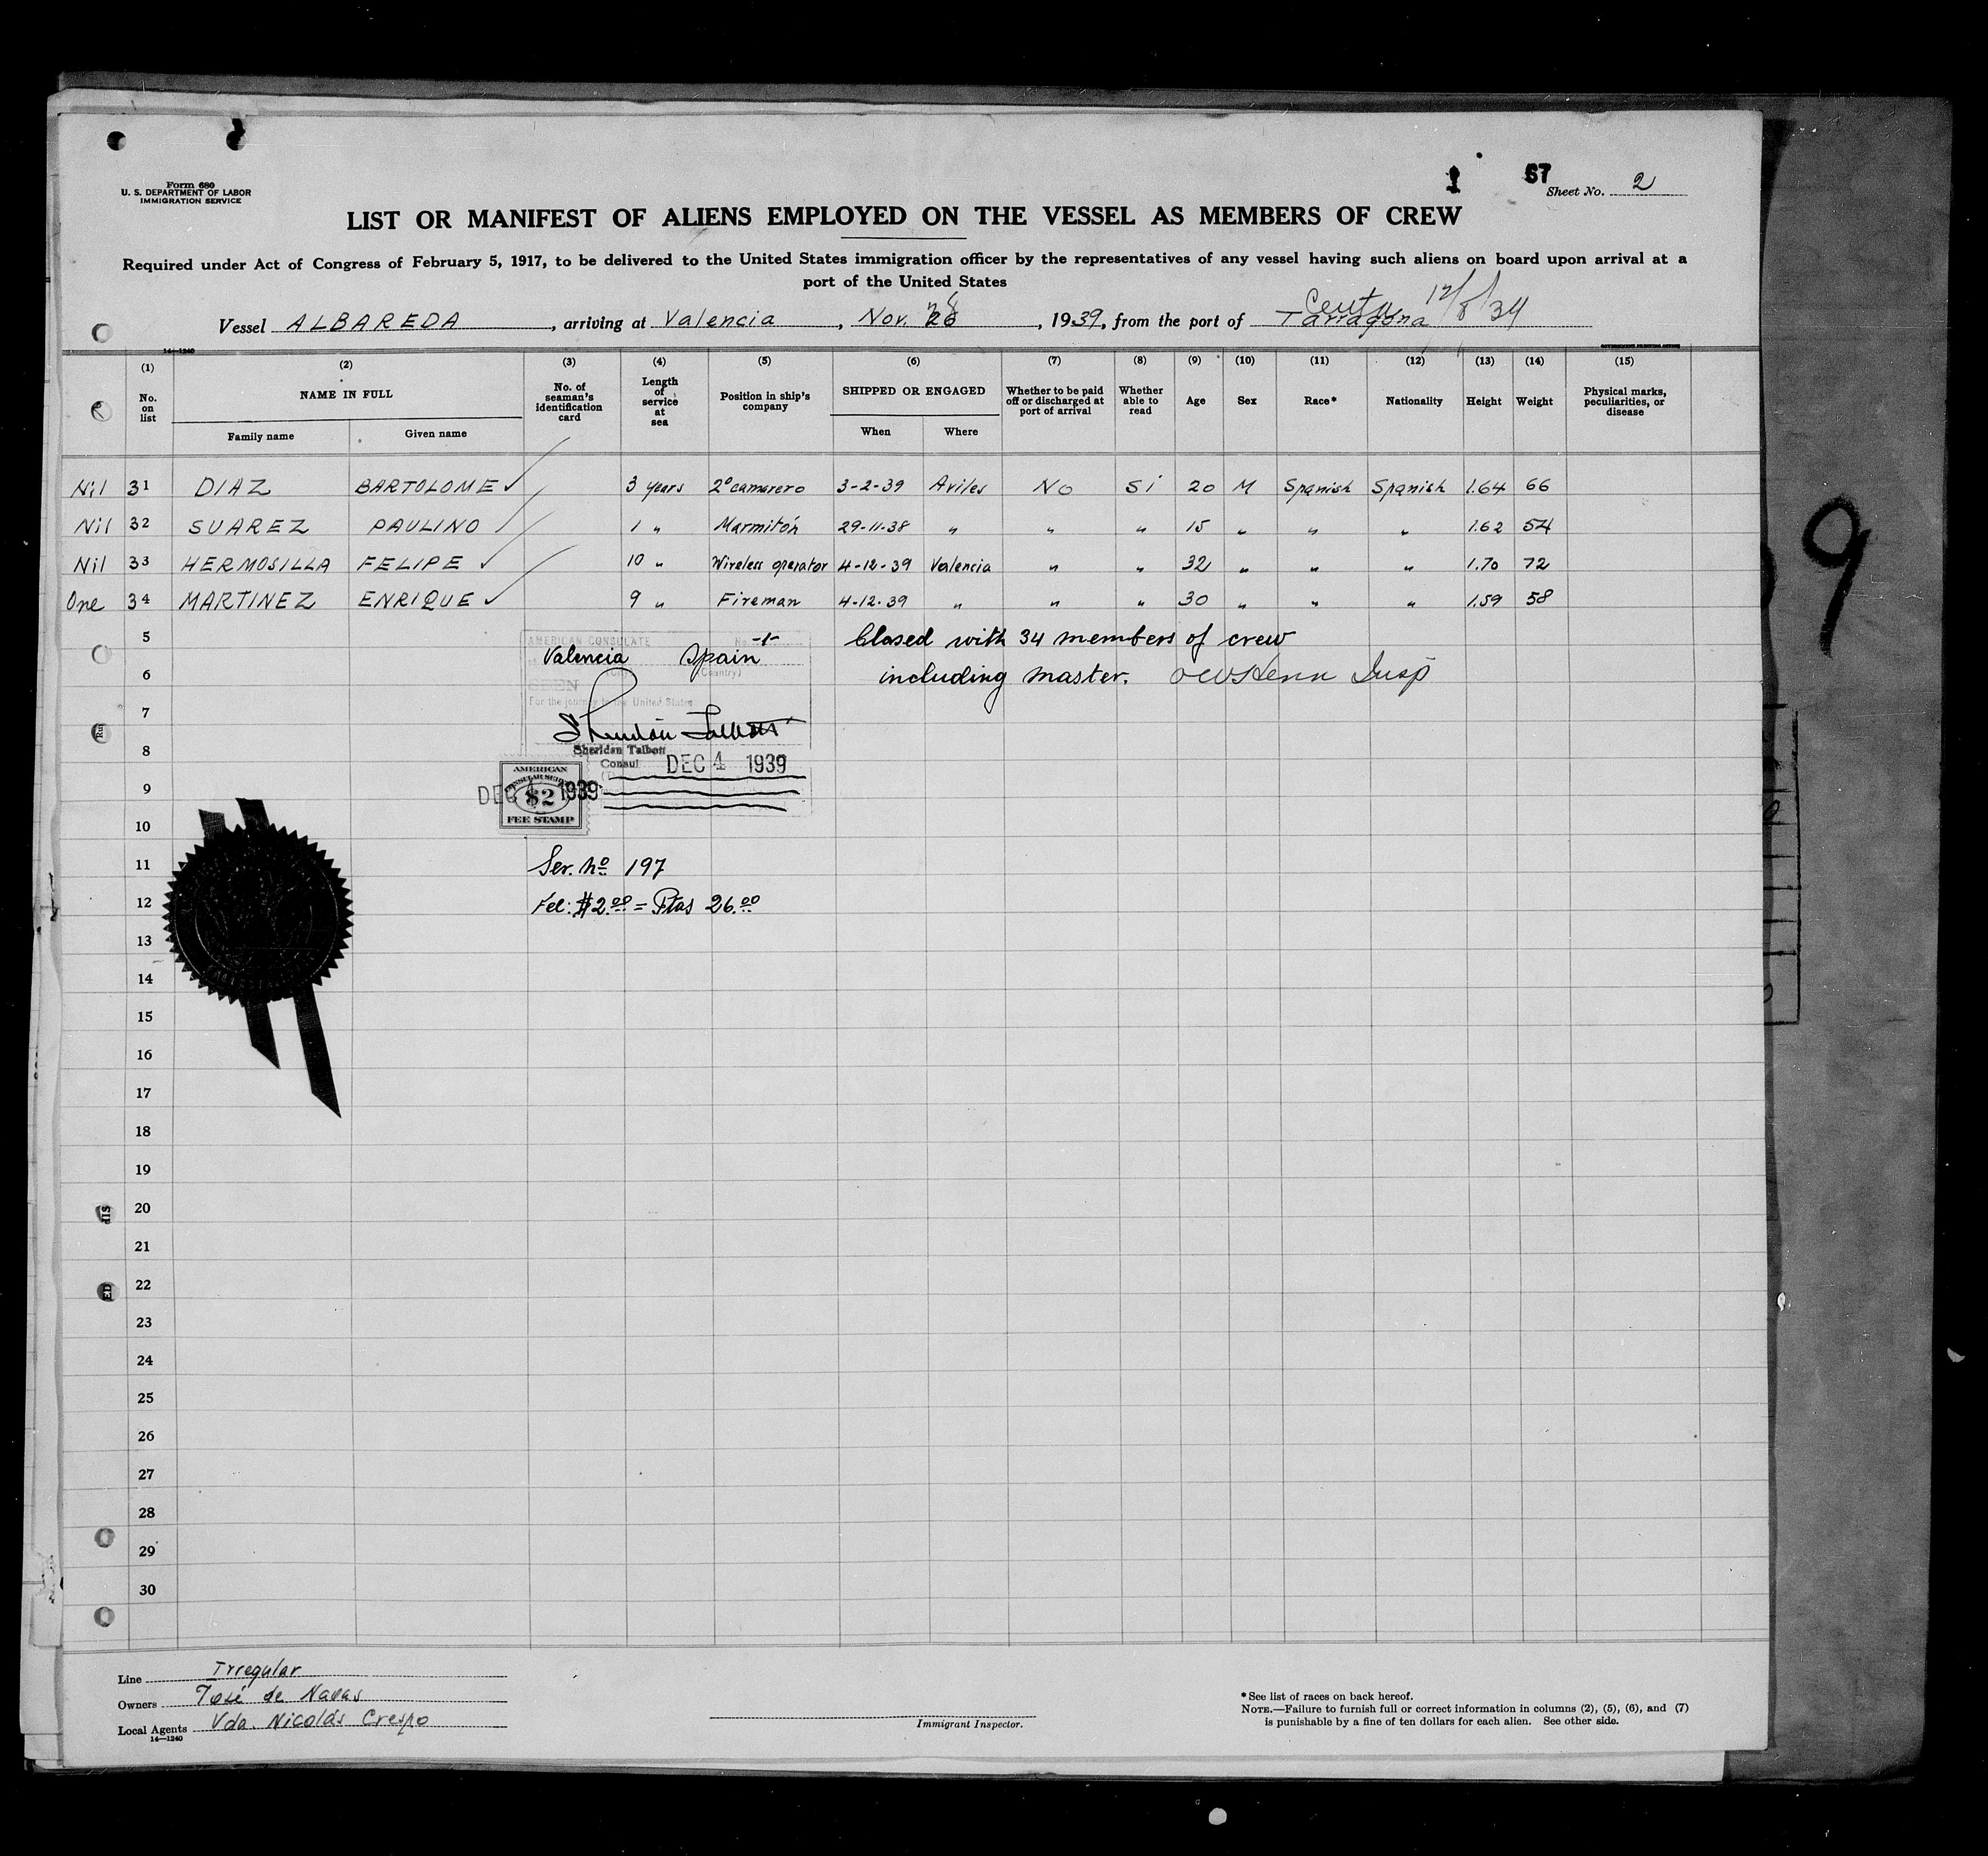 Form 680
U. S. DEPARTMENT OF LABOR
IMMIGRATION SERVICE
1 67
Sheet No. 2
LIST OR MANIFEST OF ALIENS EMPLOYED ON THE VESSEL AS MEMBERS OF CREW
Required under Act of Congress of February 5, 1917, to be delivered to the United States immigration officer by the representatives of any vessel having such aliens on board upon arrival at a
port of the United States
Ceuta 12/8/39
Vessel ALBAREDA, arriving at Valencia, Nov. 28, 1939, from the port of Tarragona
14—1240
(1) (2) (3) (4) (5) (6) (7) (8) (9) (10) (11) (12) (13) (14) (15)
No. on list NAME IN FULL No. of seaman's identification card Length of service at sea Position in ship's company SHIPPED OR ENGAGED Whether to be paid off or discharged at port of arrival Whether able to read Age Sex Race* Nationality Height Weight Physical marks, peculiarities, or disease
Family name Given name When Where
Nil 31 DIAZ BARTOLOME ✓ 3 years 2º camarero 3-2-39 Aviles No Si 20 M Spanish Spanish 1.64 66
Nil 32 SUAREZ PAULINO ✓ 1 " Marmitón 29-11-38 " " " 15 " " " 1.62 54
Nil 33 HERMOSILLA FELIPE ✓ 10 " Wireless operator 4-12-39 Valencia " " 32 " " " 1.70 72
One 34 MARTINEZ ENRIQUE ✓ 9 " Fireman 4-12-39 " " " 30 " " " 1.59 58
5
AMERICAN CONSULATE No. -1-
Valencia Spain
(City) (Country)
Closed with 34 members of crew
including master. Insp
6
SEEN
For the journey to the United States
7
Sheridan Talbott
8
Sheridan Talbott
Consul DEC 4 1939
9
DEC 4 1939
AMERICAN
CONSULAR SERVICE
$2
FEE STAMP
10
11 Ser. Nº 197
12 Fee: $2.00 = Ptas 26.00
13
14
15
16
17
18
19
20
21
22
23
24
25
26
27
28
29
30
Line Irregular
Owners José de Navas
Local Agents Vda. Nicolás Crespo
14—1240
Immigrant Inspector.
*See list of races on back hereof.
NOTE.—Failure to furnish full or correct information in columns (2), (5), (6), and (7)
is punishable by a fine of ten dollars for each alien. See other side.
9